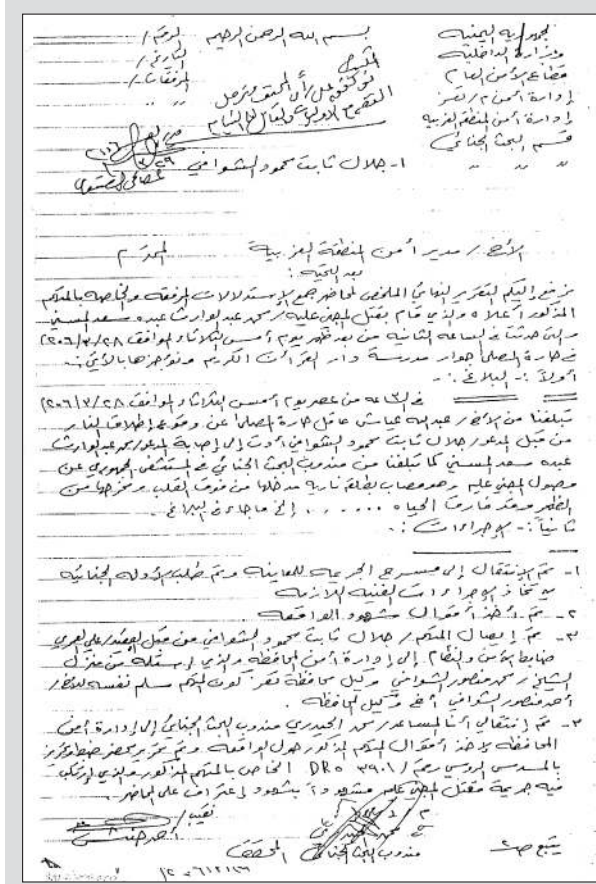 الجمهورية اليمنية
بسم الله الرحمن الرحيم
الرقم /
وزارة الداخلية
التاريخ /
قطاع الأمن العام
المرفقات /
إدارة أمن م/ تعز
إدارة أمن المنطقة الغربية
قسم البحث الجنائي
١- جلال ثابت محمود الشوافي
الأخ / مدير أمن المنطقة الغربية المحترم
بعد التحية :
نرفع إليكم التقرير النهائي الملخص لمحاضر جمع الإستدلالات المرفقة والخاصة بالمتهم
المذكور أعلاه والذي قام بقتل المجني عليه / محمد عبدالوارث عبده سعد
والتي حدثت في الساعة الثانية من بعد ظهر يوم أمس الثلاثاء الموافق ٢٠٠٦/٣/٢٨
في حارة المصلى جوار مدرسة دار القرآن الكريم ونوجزها بالآتي :-
أولاً :- البلاغ :-
في الساعة من عصر يوم أمس الثلاثاء الموافق ٢٠٠٦/٣/٢٨
تبلغنا من الأخ / عبدالله عباس عاقل حارة المصلى عن وقوع إطلاق النار
من قبل المدعو / جلال ثابت محمود الشوافي أدت إلى إصابة المدعو / محمد عبدالوارث
عبده سعد كما تبلغنا من مندوب البحث الجنائي في المستشفى الجمهوري عن
وصول المجني عليه وهو مصاب بطلقة نارية مدخلها من فوق القلب ومخرجها من
الظهر وقد فارق الحياة ...... إلخ ماجاء في البلاغ .
ثانياً :- الإجراءات :-
١- تم الإنتقال إلى مسرح الجريمة للمعاينة وتم طلب الأدلة الجنائية
لإتخاذ الإجراءات الفنية اللازمة
٢- تم أخذ أقوال شهود الواقعة
٣- تم إيصال المتهم / جلال ثابت محمود الشوافي من قبل العقيد / علي
ضابط الأمن والنظام إلى إدارة أمن المحافظة والذي إستلمه من منزل
الشيخ / محمد منصور الشوافي وكيل محافظة تعز كون المتهم سلم نفسه للأخ /
أحمد منصور الشوافي أخ وكيل المحافظة .
٣- تم إنتقالي أنا المساعد / محمد الحيدري مندوب البحث الجنائي إلى إدارة أمن
المحافظة لأخذ أقوال المتهم المذكور حول الواقعة وتم تحرير محضر ضبط وتحريز
بالمسدس الروسي رقم / DR٥ ٣٩٠١ الخاص بالمتهم المذكور والذي إرتكب
فيه جريمة مقتل المجني عليه
نقيب /
يتبع ص٢
مندوب البحث الجنائي
المحقق